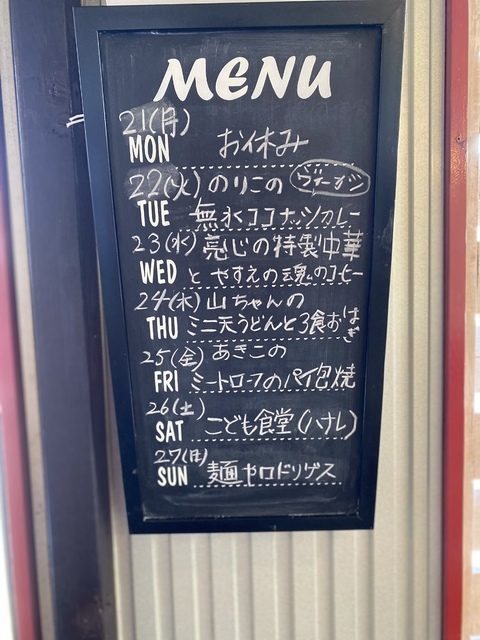 MENU
21(月)
MON お休み
22(火) のりこの ヴィーガン
TUE 無水ココナッツカレー
23(水) 亮じの特製中華
WED と やすえの魂のコーヒー
24(木) 山ちゃんの
THU ミニ天うどんと3食おはぎ
25(金) あきこの
FRI ミートローフのパイ包焼
26(土)
SAT こども食堂(ハナレ)
27(日)
SUN 麺やロドリゲス